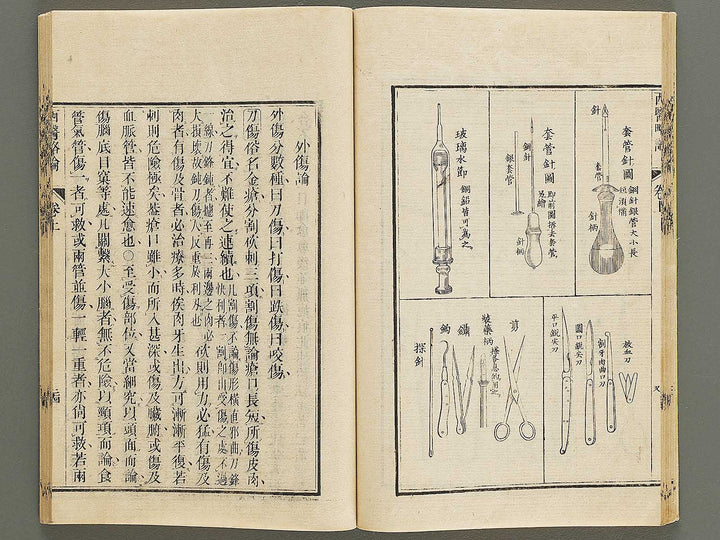 套管針圖
鋼針銀管大小長
短須備
針
套管
針柄
套管針圖
即前圖拆去套管
易繪
鋼針
銀套管
針柄
玻璃水節
銅鉛皆可為之
放血刀
割牙肉曲口刀
圓口銳尖刀
平口銳尖刀
剪
裝藥柄
鑷
鈎
探針
外傷論
外傷分數種曰刀傷曰打傷曰跌傷曰咬傷
刀傷俗名金瘡分割砍刺三項割傷無論瘡口長短所傷皮肉
治之得宜不難使之連續也
凡割傷不論傷形橫直邪曲刀鋒
快利者一割即止受傷之處不過
一線刀鋒鈍者
兩邊之肉必
大損壞故鈍刀傷人反重於利刀也
砍則用力必猛有傷及
肉者有傷及骨者必治療多時俟肉牙生出方可漸漸平復若
刺則危險極矣葢瘡口雖小而所入甚深或傷及臟腑或傷及
血脈管皆不能速愈也○至受傷部位又當細究以頭面而論
傷腦底目窠等處凡關繫大小腦者無不危險以頸項而論食
管氣管傷一者可救或兩管並傷一輕一重者亦尚可救若兩
西醫略論
卷上